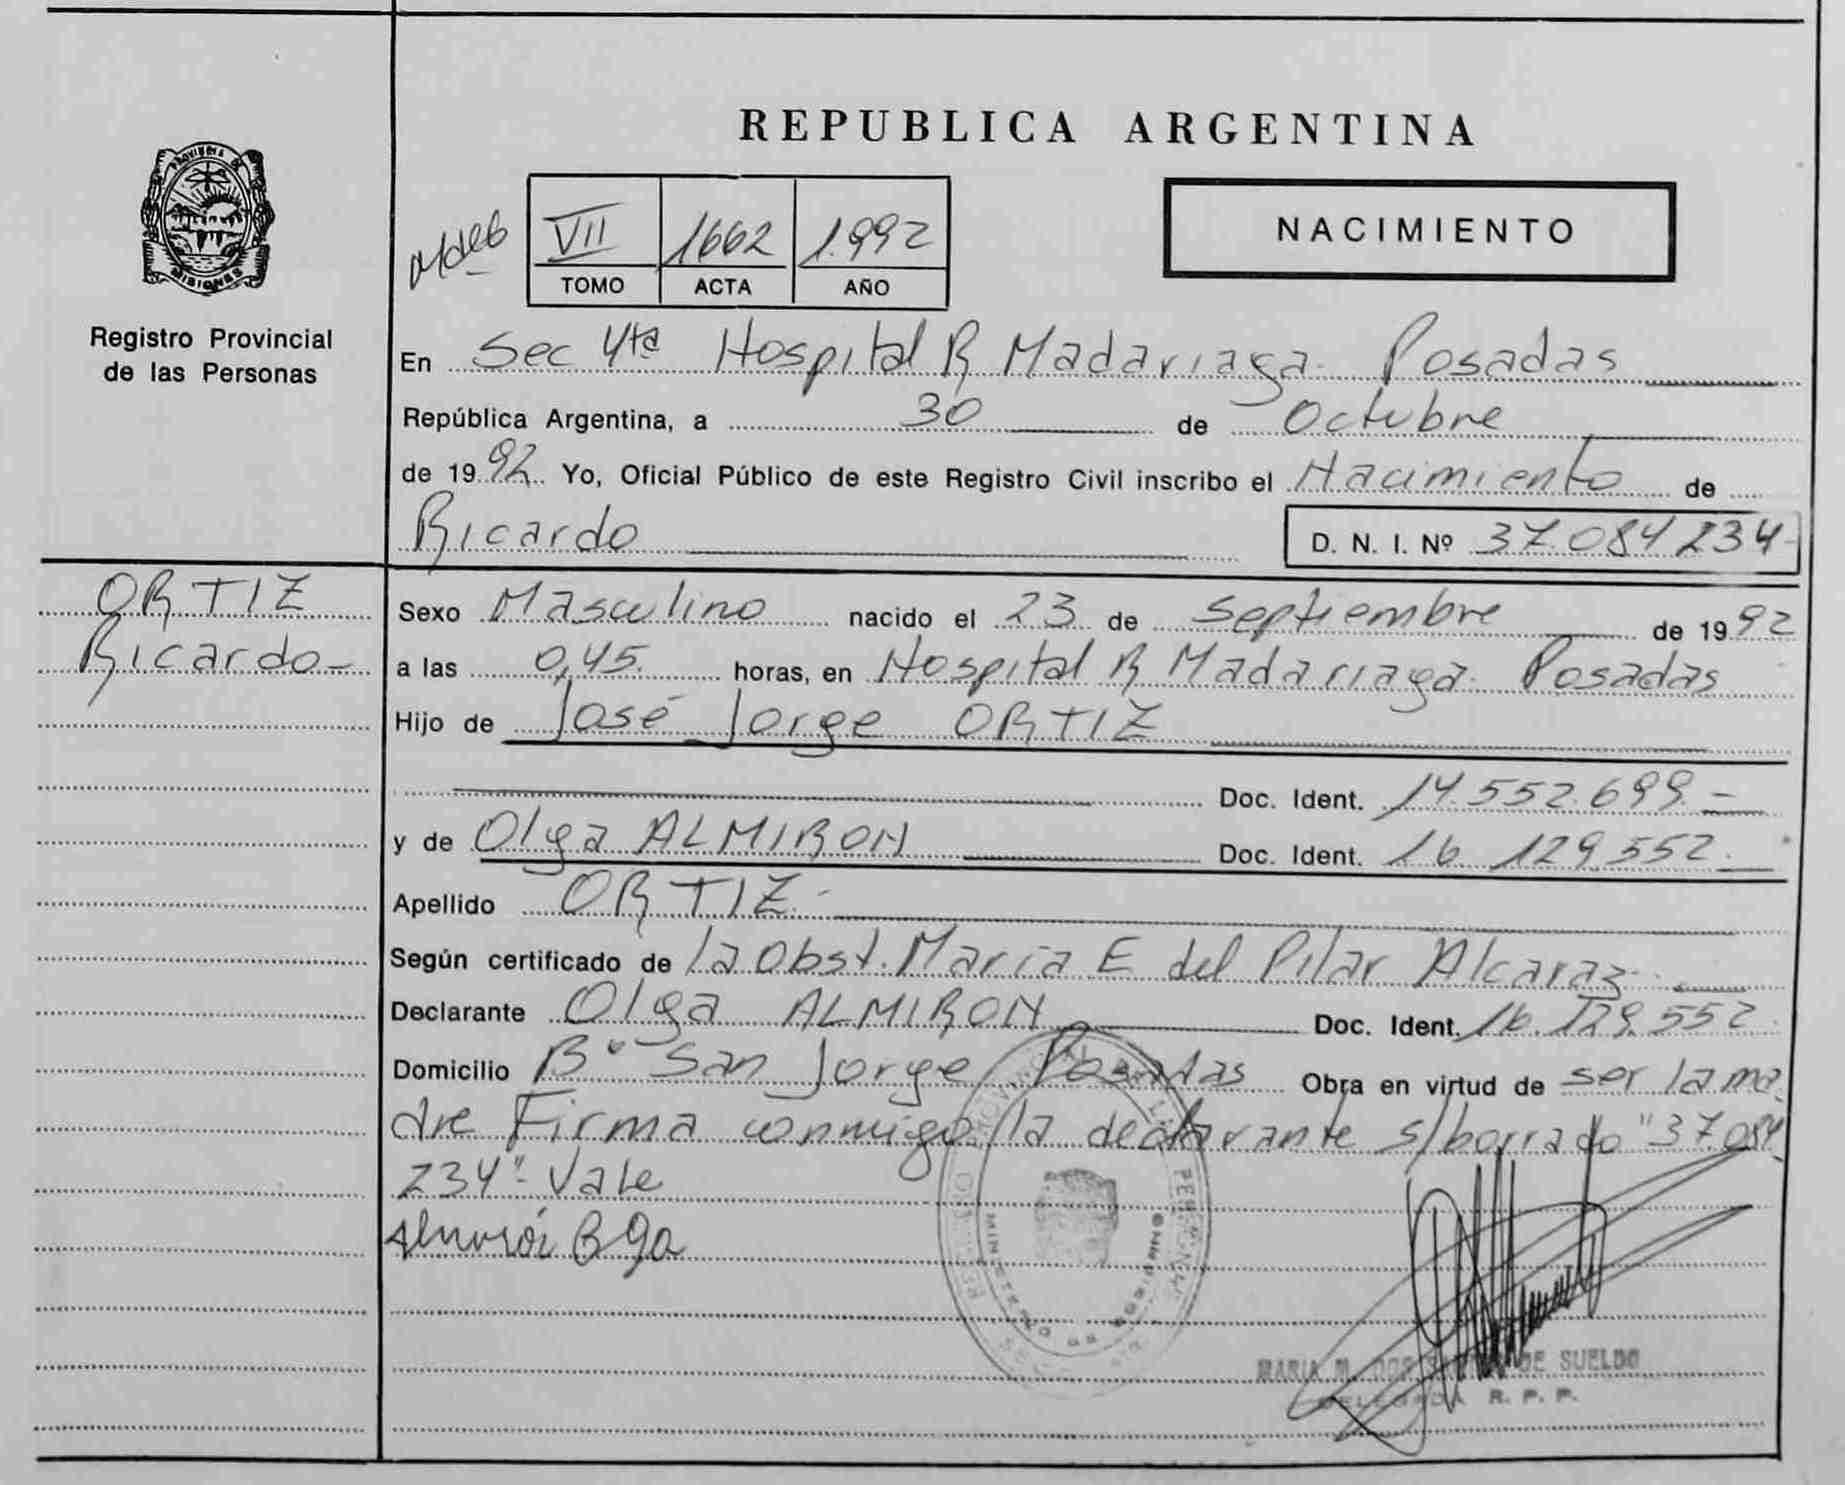 REPUBLICA ARGENTINA
PROVINCIA DE
MISIONES
Registro Provincial
de las Personas
VII 1662 1.992
TOMO ACTA AÑO
NACIMIENTO
En Sec 4ta Hospital R Madariaga Posadas
República Argentina, a 30 de Octubre
de 1992 Yo, Oficial Público de este Registro Civil inscribo el Nacimiento de
Ricardo
D. N. I. Nº 37.084 234
ORTIZ
Ricardo
Sexo Masculino nacido el 23 de Septiembre de 1992
a las 0,45 horas, en Hospital R Madariaga Posadas
Hijo de José Jorge ORTIZ
Doc. Ident. 14.552.699.-
y de Olga ALMIRON Doc. Ident. 16 129 552.
Apellido ORTIZ.
Según certificado de la Obst. María E del Pilar Alcaraz
Declarante Olga ALMIRON Doc. Ident. 16.129.552
Domicilio Bº San Jorge Posadas Obra en virtud de ser la ma
dre Firma conmigo la declarante s/borrado "37.084
234" Vale
MINISTERIO DE GOBIERNO
MARIA M. DOS DE SUELDO
DELEGADA R. P. P.